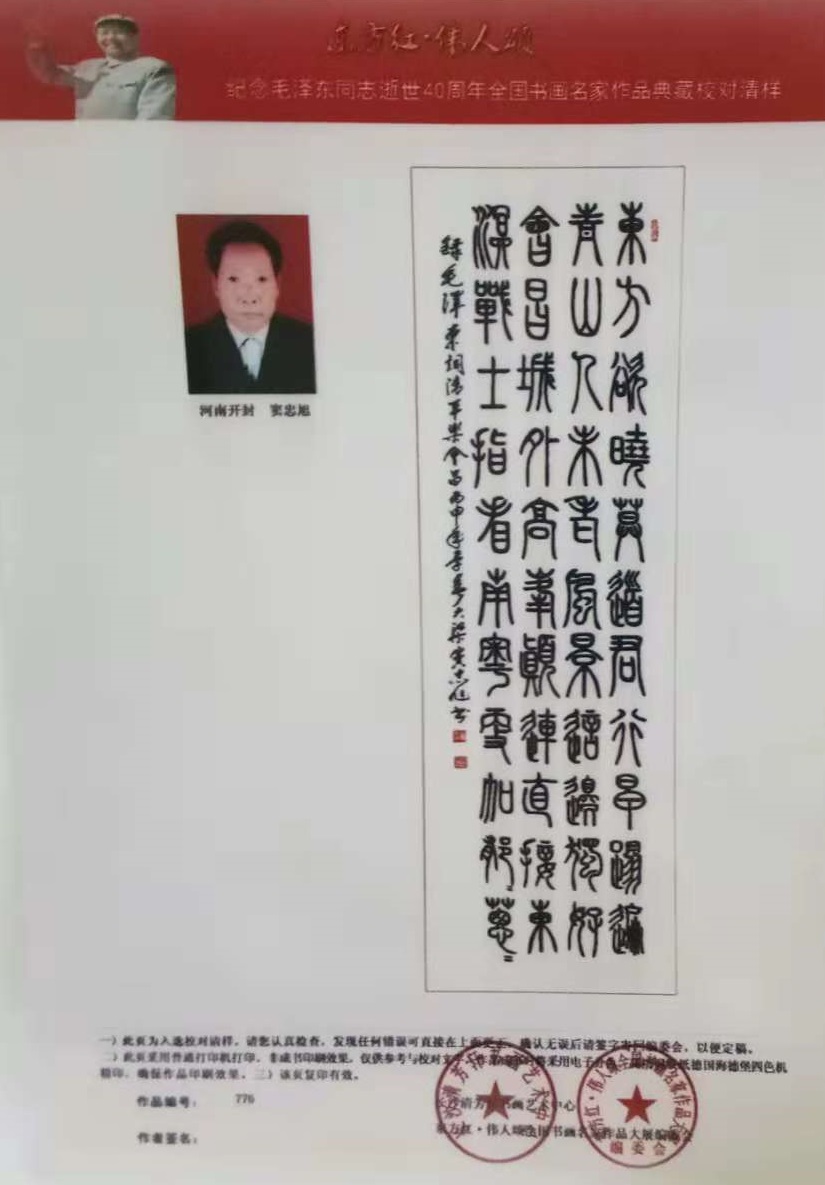 东方红·伟人颂
纪念毛泽东同志逝世40周年全国书画名家作品典藏校对清样
河南开封 窦忠旭
東方欲曉莫道君行早踢遍
青山人未老風景這邊獨好
會昌城外高峯顛連直接東
溟戰士指看南粤更加郁=葱=
錄毛澤東詞清平樂會昌丙申年季春大梁窦忠旭书
一）此页为入选校对清样，请您认真检查，发现任何错误可直接在上面更正，确认无误后请签字寄回编委会，以便定稿。
二）此页采用普通打印机打印，非成书印刷效果，仅供参考与校对文字，作品 采用电子 德国海德堡四色机
精印，确保作品印刷效果。三）该页复印有效。
作品编号： 776
长沙清芳 书画艺术中心
作者签名：
东方红·伟人颂全国书画名家作品大展编委会
编委会